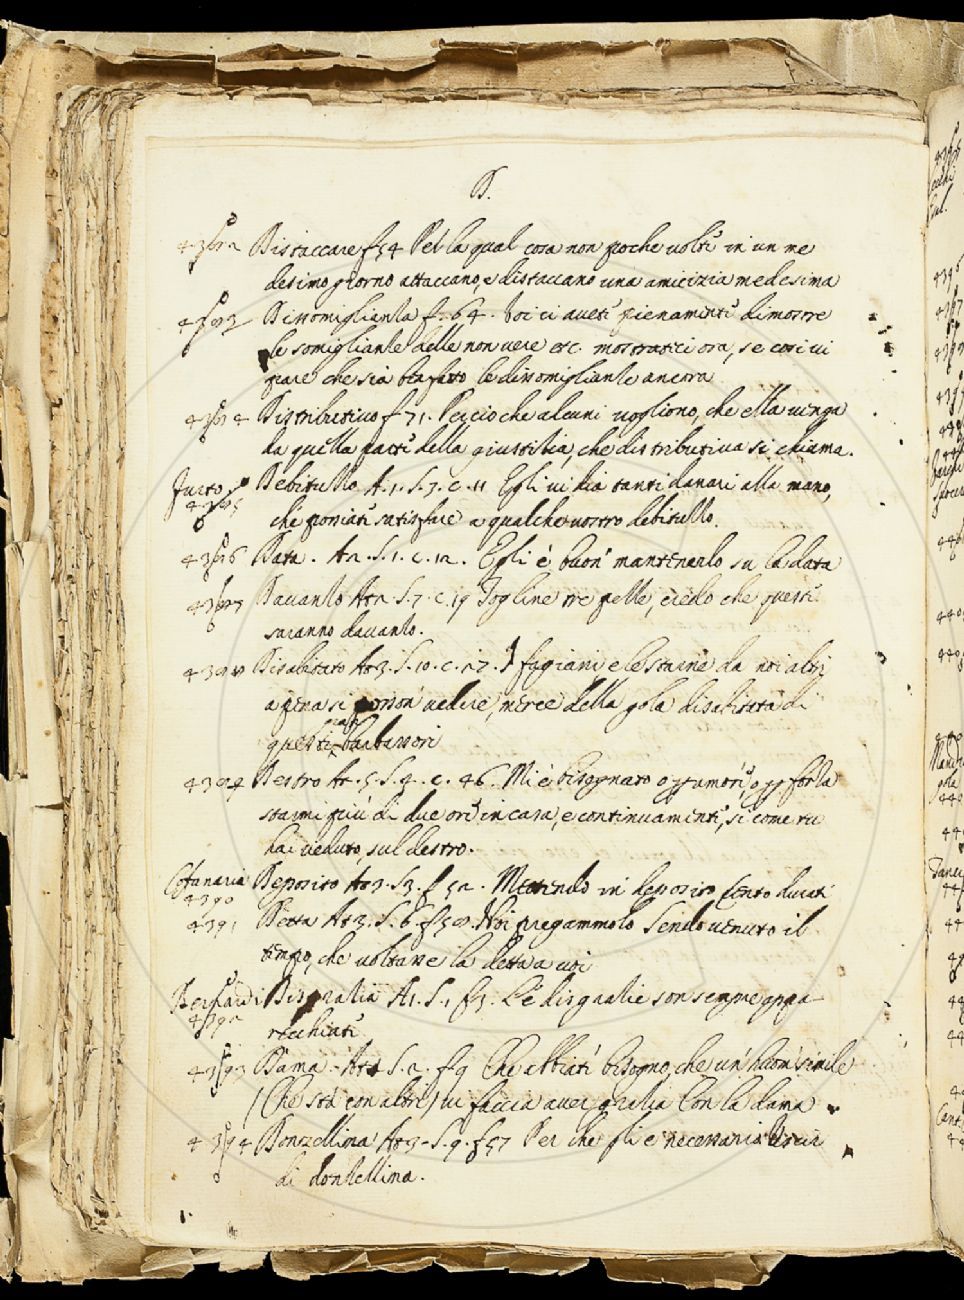 D.
4382 Distaccare f. 54 Per la qual cosa non poche volte in un me
desimo giorno attaccano, e distaccano una amicizia medesima
4383 Dissomiglianza f. 64. Voi ci avete pienamente dimostre
le somiglianze delle non vere etc. mostrateci ora, se cosi vi
pare che sia ben fatto le dissomiglianze ancora
4384 Distributivo f 71. Percioche alcuni vogliono, che ella venga
da quella parte della giustitia, che distributiva si chiama.
Furto Debituzzo A. 1. S. 3. c. 11 Egli vi dia tanti danari alla mano,
4385 che possiate satisfare a qualche vostro debituzzo.
4386 Data. At 2. S. 1. c. 12. Egli è buon mantenerlo su la data
4387 Davanzo At 2. S. 7. c. 19 Togline tre pelle, credo che queste
saranno davanzo.
4388 Disabitato At 3. S. 10. c. 27. I fagiani, e le starne da noi altri
apena si posson vedere, merce della gola disabitata di
questi barbassori
4389 Destro At. 5. S. 4. c. 46. Mi è bisognato
starmi più di due ore in casa, e continuamente, si come tu
hai veduto, sul destro.
Cofanaria Deposito At 3. S. 3. f 52. Mettendo in deposito cento ducati
4390
4391 Detta At 3. S. 6. f 58. Noi pregammolo sendo venuto il
tempo, che voltasse la detta a voi
Bernardi Disgrazia A 1. S. 1 f 3. Le disgrazie son sempre appa
4392 recchiate
4393 Dama. At 1 S. 2. f. 9 Che abbiate bisogno, che un huom simile
(Che stà con altri) vi faccia aver grazia con la dama
4394 Donzellina At 3. S. 9. f 57 Per che gli è necessaria
di donzellina.